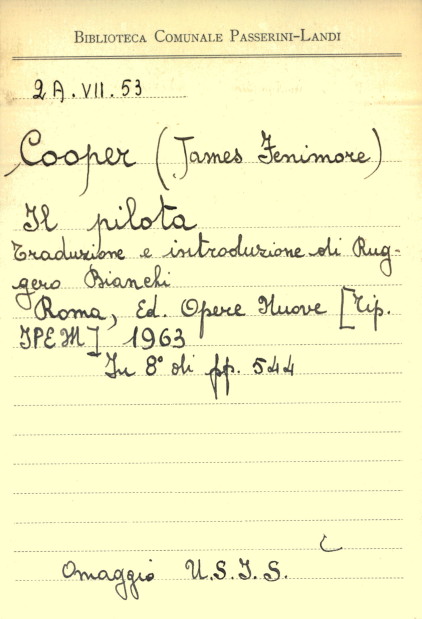 BIBLIOTECA COMUNALE PASSERINI-LANDI
2A.VII.53
Cooper (James Fenimore)
Il pilota
Traduzione e introduzione di Rug-
gero Bianchi
Roma, Ed. Opere Nuove [Tip.
IPEM] 1963
In 8° di pp. 544
Omaggio U.S.I.S.